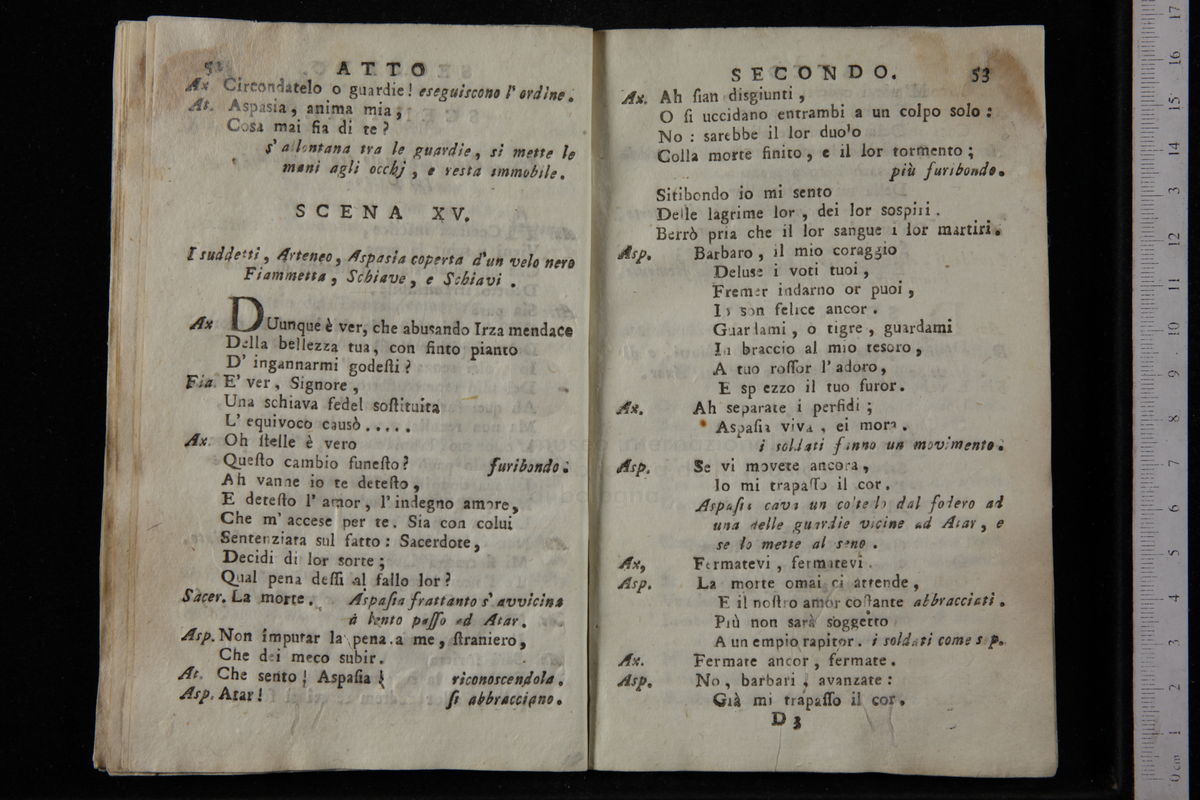 52 ATTO
Ax Circondatelo o guardie! eseguiscono l'ordine.
At. Aspasia, anima mia,
Cosa mai fia di te?
s'allontana tra le guardie, si mette le
mani agli occhj, e resta immobile.
SCENA XV.
I suddetti, Arteneo, Aspasia coperta d'un velo nero
Fiammetta, Schiave, e Schiavi.
Ax DUunque è ver, che abusando Irza mendace
Della bellezza tua, con finto pianto
D' ingannarmi godeſti?
Fia. E' ver, Signore,
Una schiava fedel soſtituita
L' equivoco causò.....
Ax. Oh ſtelle è vero
Queſto cambio funeſto? furibondo.
Ah vanne io te deteſto,
E deteſto l' amor, l' indegno amore,
Che m' accese per te. Sia con colui
Sentenziata sul fatto: Sacerdote,
Decidi di lor sorte;
Qual pena deſſi al fallo lor?
Sacer. La morte. Aspaſia frattanto s' avvicina
a lento paſſo ad Atar.
Asp. Non imputar la pena a me, ſtraniero,
Che dei meco subir.
At. Che sento! Aspaſia! riconoscendola.
Asp. Atar! ſi abbracciano.
SECONDO. 53
Ax. Ah ſian disgiunti,
O ſi uccidano entrambi a un colpo solo:
No: sarebbe il lor duolo
Colla morte finito, e il lor tormento;
più furibondo.
Sitibondo io mi sento
Delle lagrime lor, dei lor sospiri.
Berrò pria che il lor sangue i lor martiri.
Asp. Barbaro, il mio coraggio
Deluse i voti tuoi,
Fremer indarno or puoi,
Io son felice ancor.
Guardami, o tigre, guardami
In braccio al mio tesoro,
A tuo roſſor l' adoro,
E sprezzo il tuo furor.
Ax. Ah separate i perfidi;
Aspaſia viva, ei mora.
i soldati fanno un movimento.
Asp. Se vi movete ancora,
Io mi trapaſſo il cor.
Aspaſia cava un coltello dal fodero ad
una delle guardie vicine ad Atar, e
se lo mette al seno.
Ax, Fermatevi, fermatevi.
Asp. La morte omai ci attende,
E il noſtro amor coſtante abbracciati.
Più non sarà soggetto
A un empio rapitor. i soldati come sop.
Ax. Fermate ancor, fermate.
Asp. No, barbari, avanzate:
Già mi trapaſſo il cor.
D 3
0 cm 1 2 3 4 5 6 7 8 9 10 11 12 13 14 15 16 17